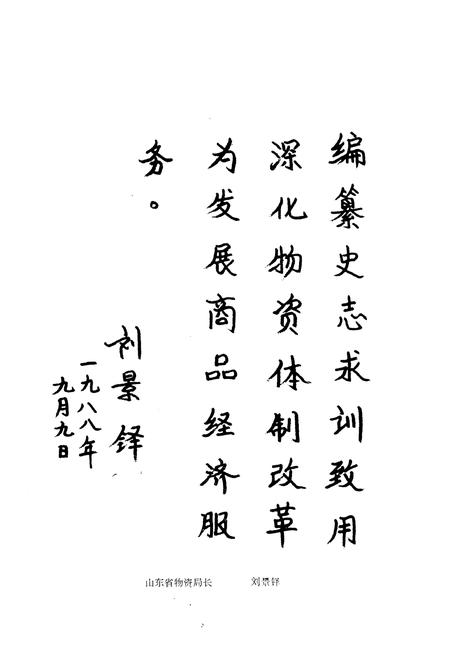 编纂史志求训致用
深化物资体制改革
为发展商品经济服
务。
刘景铎
一九八八年
九月九日
山东省物资局长 刘景铎